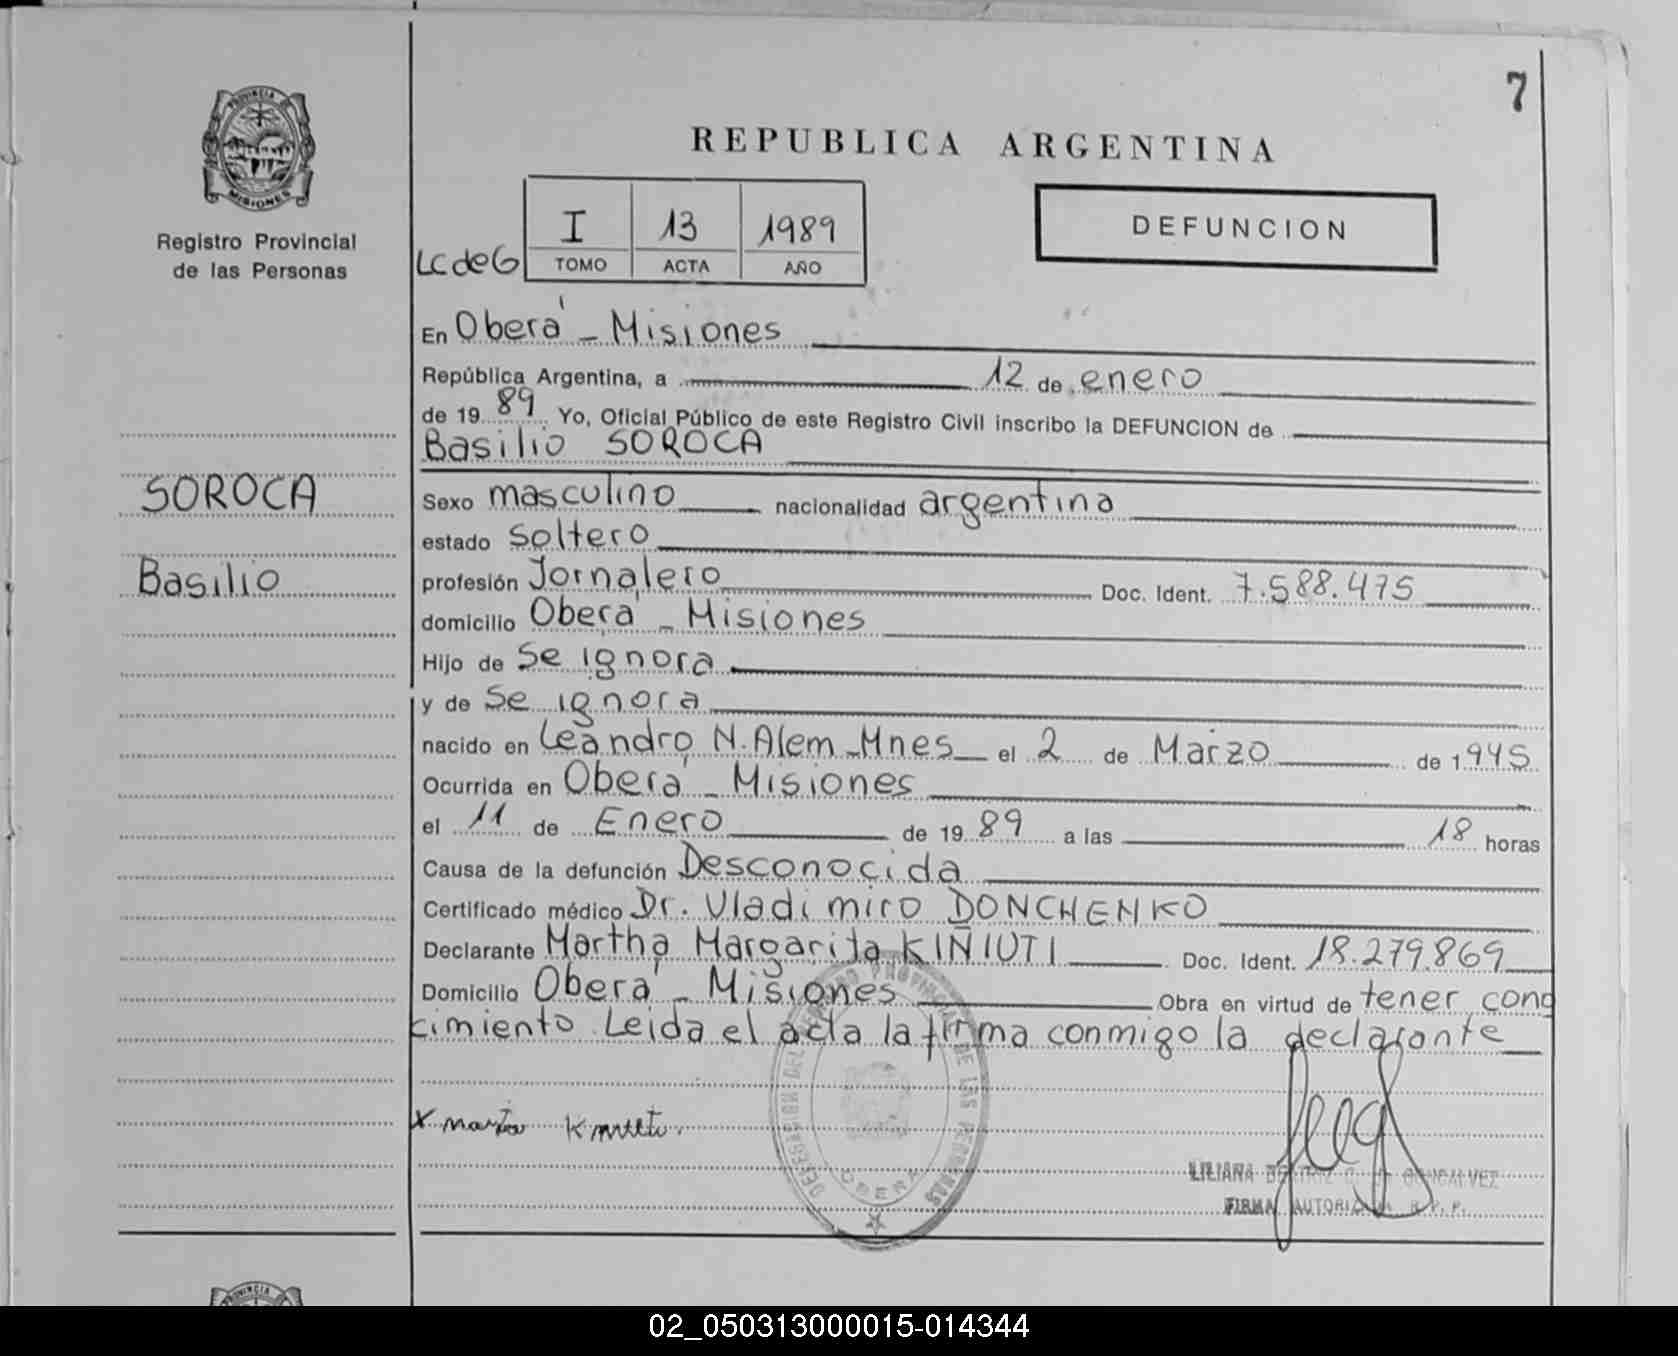 7
PROVINCIA DE
MISIONES
Registro Provincial
de las Personas
REPUBLICA ARGENTINA
LCdeG
I 13 1989
TOMO ACTA AÑO
DEFUNCION
En Oberá - Misiones
República Argentina, a 12 de enero
de 19 89 Yo, Oficial Público de este Registro Civil inscribo la DEFUNCION de
Basilio SOROCA
SOROCA
Basilio
Sexo masculino nacionalidad argentina
estado soltero
profesión Jornalero Doc. Ident. 7.588.475
domicilio Oberá - Misiones
Hijo de se ignora
y de se ignora
nacido en Leandro N. Alem - Mnes el 2 de Marzo de 1945
Ocurrida en Oberá - Misiones
el 11 de Enero de 19 89 a las 18 horas
Causa de la defunción Desconocida
Certificado médico Dr. Vladimiro DONCHENKO
Declarante Martha Margarita KIÑIUTI Doc. Ident. 18.279.869
Domicilio Oberá - Misiones Obra en virtud de tener cono
cimiento. Leida el acta la firma conmigo la declarante
X
LILIANA GONCALVEZ
FIRMA R. P. P.
OBERA
PROVINCIA DE
02_050313000015-014344